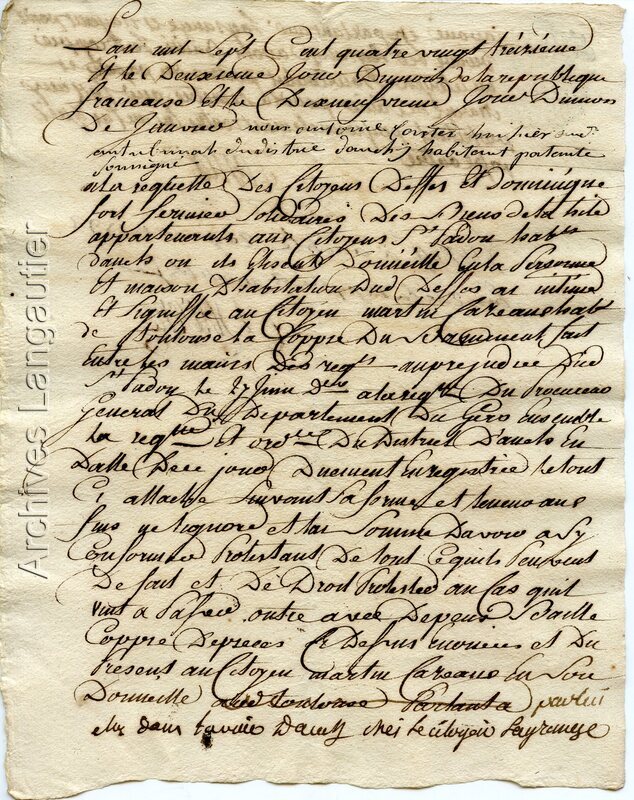 Lan mil Sept Cent quatre vingt treizieme
Et le Deuxieme Jour Dumois de la republique
francaise et le Dixneufvieme Jour Dumois
De Janvier nous antoine huisier
au tribunal du distric dauch y habitant patenté
soussigné
a la requette Des Citoyens Deffes Et dominique
fort fermier Solidaires Des Biens de la
appartenants aux Citoyens St Jadou habts
dauch ou ils Elisent Domicille En la Personne
Et maison Dhabitation Dud Deffes ai intimé
Et Signiffié au Citoyen martin Careaux habt
de Toulouse la Coppie Du fait
Entre les mains Des reqts au prejudice Dud
St Jadou le 27 Juin a la reqte Du Procureur
General Du Departement Du Gers ensemble
La reqte Et ordce Du District Dauch En
Datte De ce jour Duement Enregistrée le tout
Ci attaché Suivant Sa forme et teneur aux
fins ne lignore et lai Sommé Davoir a Sy
Conformer Protestant De tout Ce quils Peuvent
De fait et De Droit Protester au Cas quil
vint a outre avec Depens Baillé
Coppie De pieces Cy Dessus et Du
Présent au Citoyen martin Careaux En Son
Domicille
dans dauch chés le Citoyen
Archives Langautier